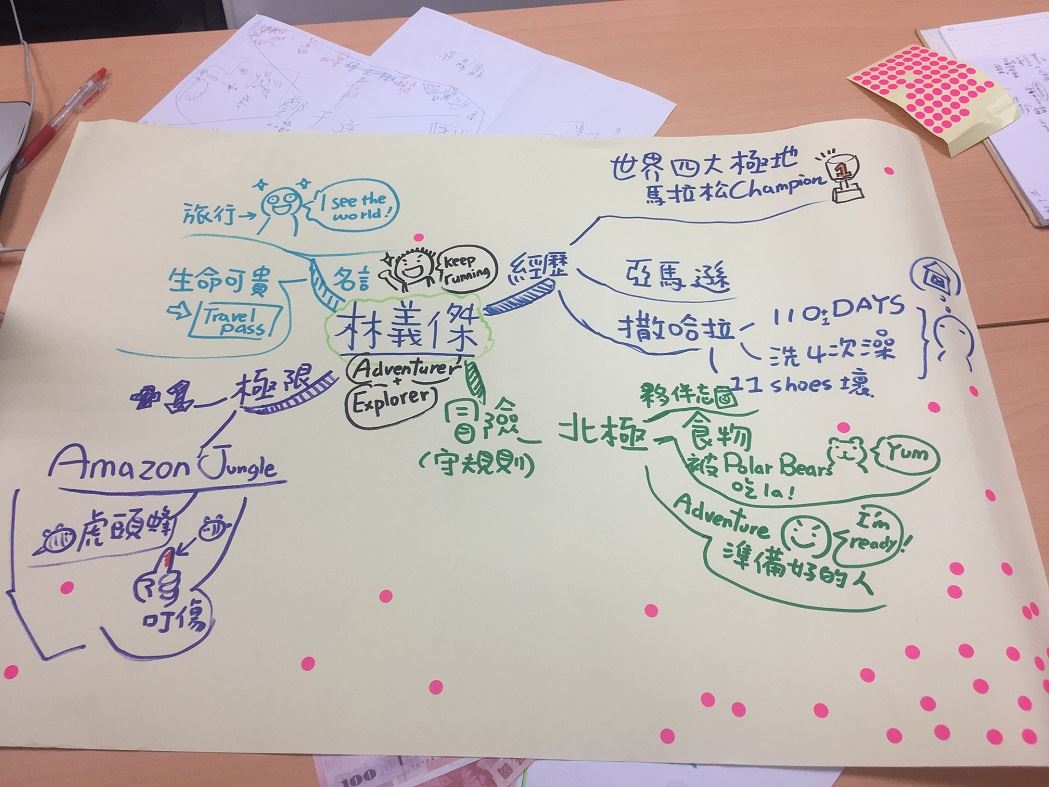 林義傑
Adventurer
+
Explorer
keep
running
名言
旅行→
I see the
world!
生命可貴
Travel
pass
經歷
世界四大極地
馬拉松Champion
1
亞馬遜
撒哈拉
110 DAYS
洗4次澡
11 shoes 壞
冒險
(守規則)
北極
夥伴
食物
被Polar Bears
吃la!
Yum
Adventure
準備好的人
I'm
ready!
極限
Amazon Jungle
虎頭蜂
1
叮傷
100